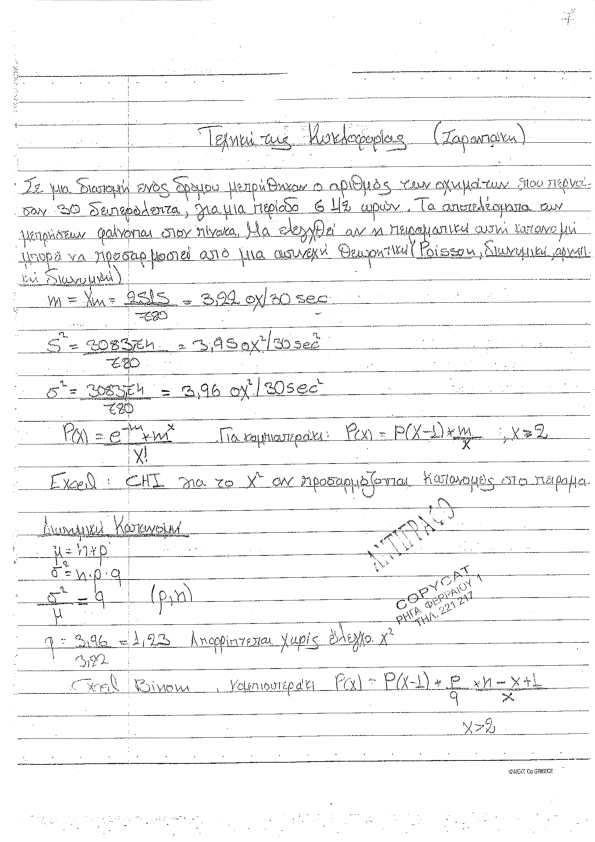 7
Τεχνική της Κυκλοφορίας (Σαραντάκη)
Σε μια διατομή ενός δρόμου μετρήθηκαν ο αριθμός των οχημάτων, που περνού-
σαν 30 δευτερόλεπτα, για μια περίοδο 6 1/2 ωρών. Τα αποτελέσματα των
μετρήσεων φαίνονται στον πίνακα. Να ελεγχθεί αν η πειραματική αυτή κατανομή
μπορεί να προσαρμοστεί από μια συνεχή θεωρητική (Poisson, διωνυμική, αρνητι-
κή διωνυμική)
m = Xm = 2515 / 780 = 3,22 οχ/30 sec
S² = 3083 / 780 = 3,95 οχ²/30sec²
σ² = 3083 / 780 = 3,96 οχ²/30sec²
P(x) = e^-m * m^x / X! Για κομπιουτεράκι: P(x) = P(X-1) * m/x ; x≥2
Excel : CHI για το X² αν προσαρμόζονται κατανομές στο πείραμα
Διωνυμική Κατανομή
μ = n*p
σ² = n·p·q
σ²/μ = q (p,n)
q = 3,96 / 3,22 = 1,23 Απορρίπτεται χωρίς έλεγχο X²
Excel Binom, κομπιουτεράκι P(x) = P(X-1) * p/q * n-x+1 / x
x>2
ΑΝΤΙΓΡΑΦΟ
COPYCAT
ΡΗΓΑ ΦΕΡΡΑΙΟΥ 1
ΤΗΛ. 221 217
©NEXT Co GREECE